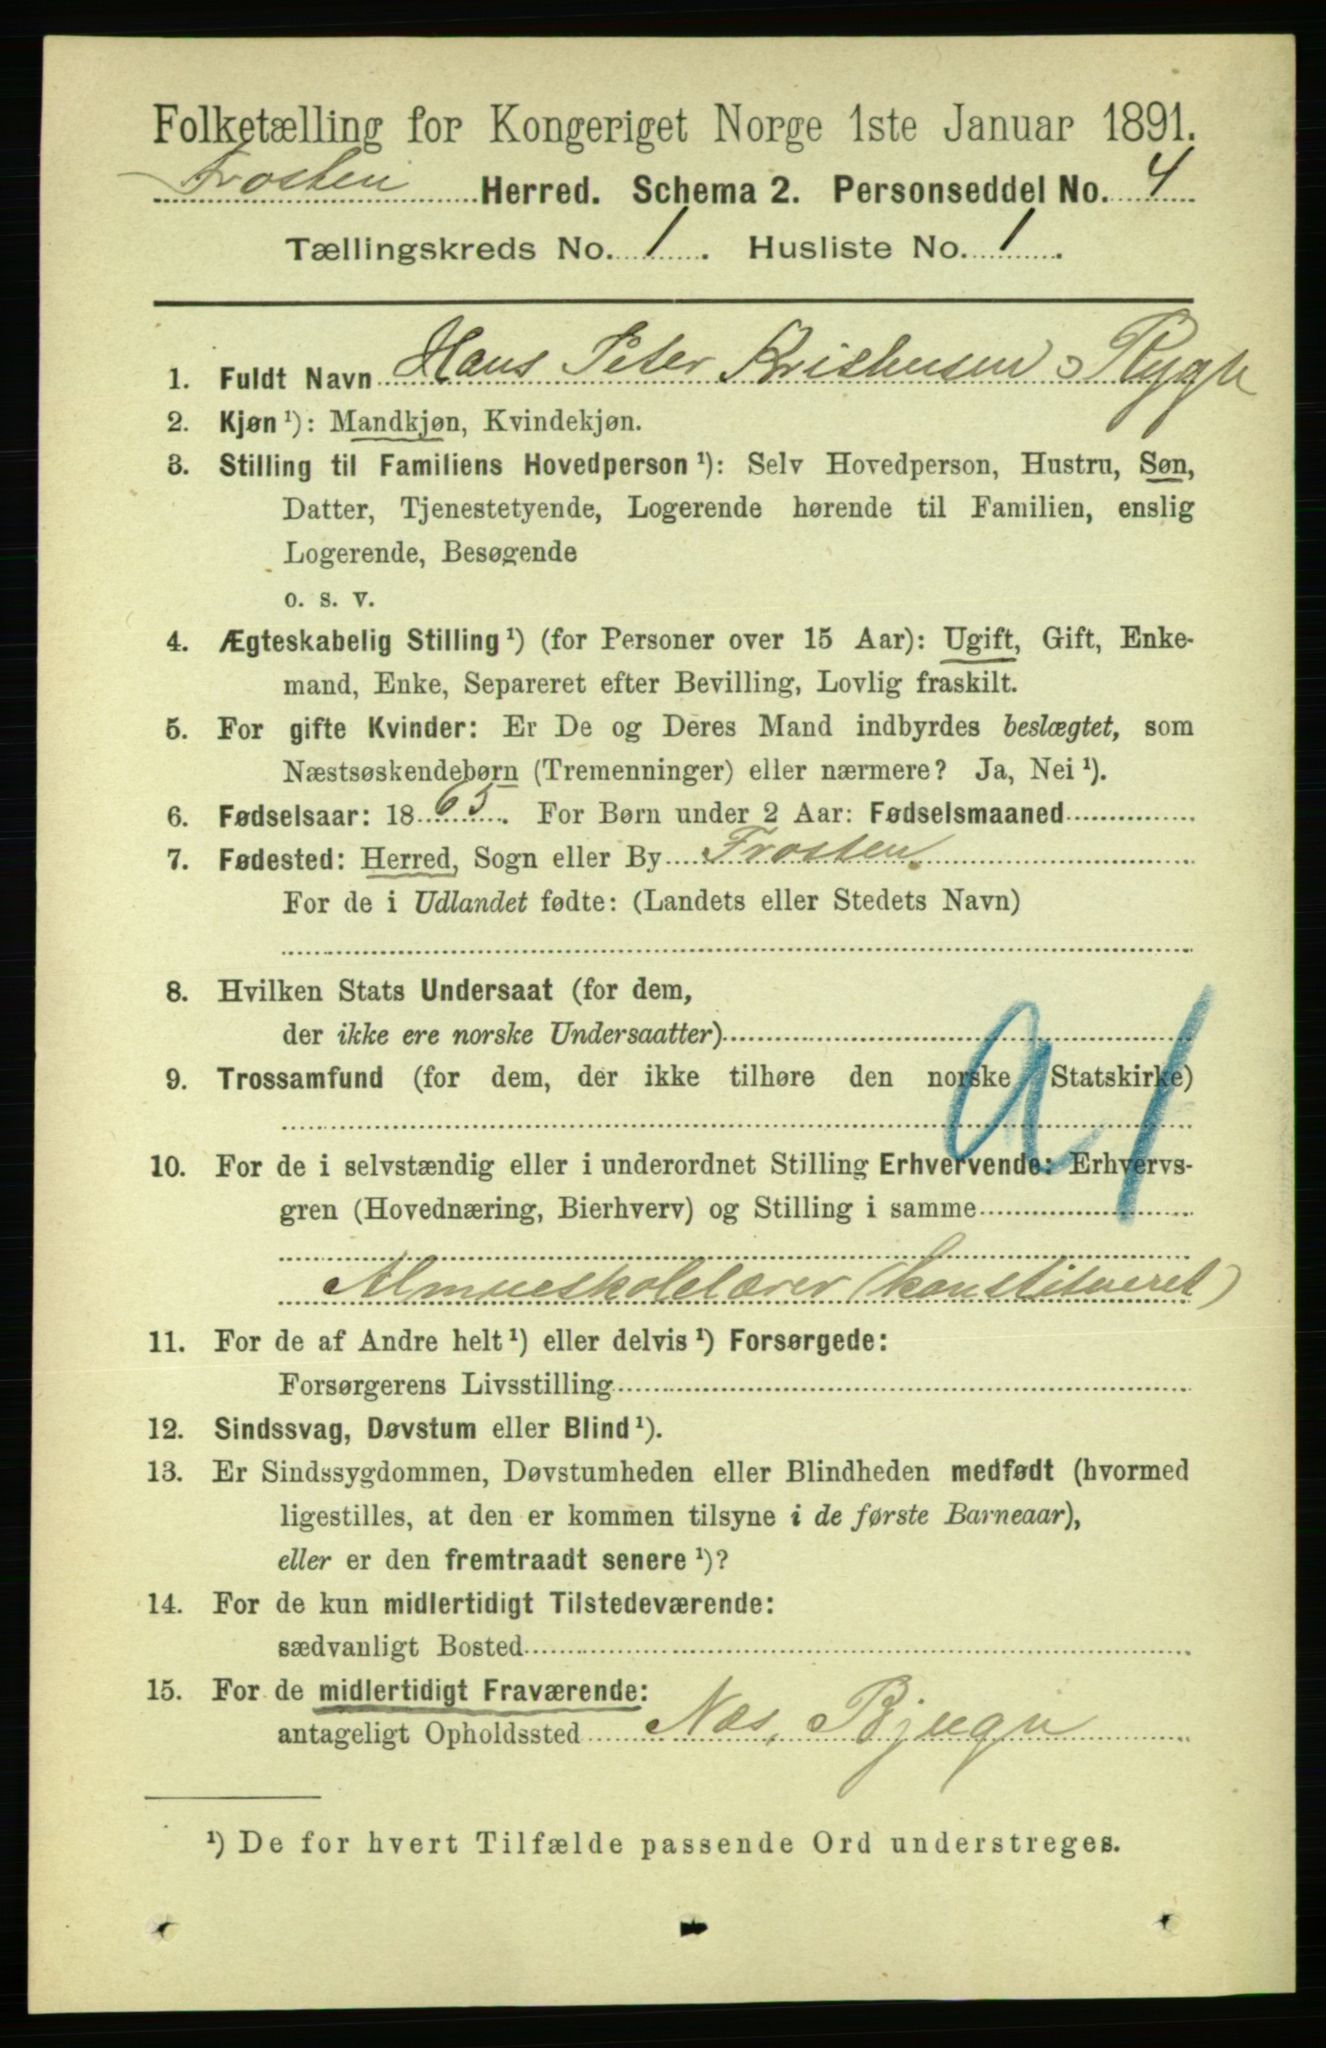 Folketælling for Kongeriget Norge 1ste Januar 1891.
Frosten Herred. Schema 2. Personseddel No. 4
Tællingskreds No. 1. Husliste No. 1.
1. Fuldt Navn Hans Peter Kristensen Rygh
2. Kjøn ¹): Mandkjøn, Kvindekjøn.
3. Stilling til Familiens Hovedperson ¹): Selv Hovedperson, Hustru, Søn,
Datter, Tjenestetyende, Logerende hørende til Familien, enslig
Logerende, Besøgende
o. s. v.
4. Ægteskabelig Stilling ¹) (for Personer over 15 Aar): Ugift, Gift, Enke-
mand, Enke, Separeret efter Bevilling, Lovlig fraskilt.
5. For gifte Kvinder: Er De og Deres Mand indbyrdes beslægtet, som
Næstsøskendebørn (Tremenninger) eller nærmere? Ja, Nei ¹).
6. Fødselsaar: 1865. For Børn under 2 Aar: Fødselsmaaned
7. Fødested: Herred, Sogn eller By Frosten.
For de i Udlandet fødte: (Landets eller Stedets Navn)
8. Hvilken Stats Undersaat (for dem,
der ikke ere norske Undersaatter)
9. Trossamfund (for dem, der ikke tilhøre den norske Statskirke)
a1
10. For de i selvstændig eller i underordnet Stilling Erhvervende: Erhvervs-
gren (Hovednæring, Bierhverv) og Stilling i samme
Almueskolelærer (konstitueret)
11. For de af Andre helt ¹) eller delvis ¹) Forsørgede:
Forsørgerens Livsstilling
12. Sindssvag, Døvstum eller Blind ¹).
13. Er Sindssygdommen, Døvstumheden eller Blindheden medfødt (hvormed
ligestilles, at den er kommen tilsyne i de første Barneaar),
eller er den fremtraadt senere ¹)?
14. For de kun midlertidigt Tilstedeværende:
sædvanligt Bosted
15. For de midlertidigt Fraværende:
antageligt Opholdssted Næs, Bjugn
¹) De for hvert Tilfælde passende Ord understreges.